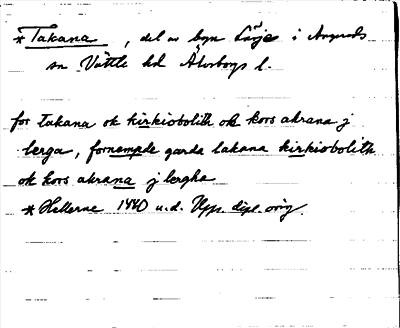 *Takana, del av byn Lärje i Angereds
sn Vättle hd Älvsborgs l.
for takana ok kirkiobolith ok kors akrana j
lerga, fornempde garda takana kirkiobolith
ok kors akrana j lergha
*Hellerne 1440 u.d. Upps. dipl. orig.